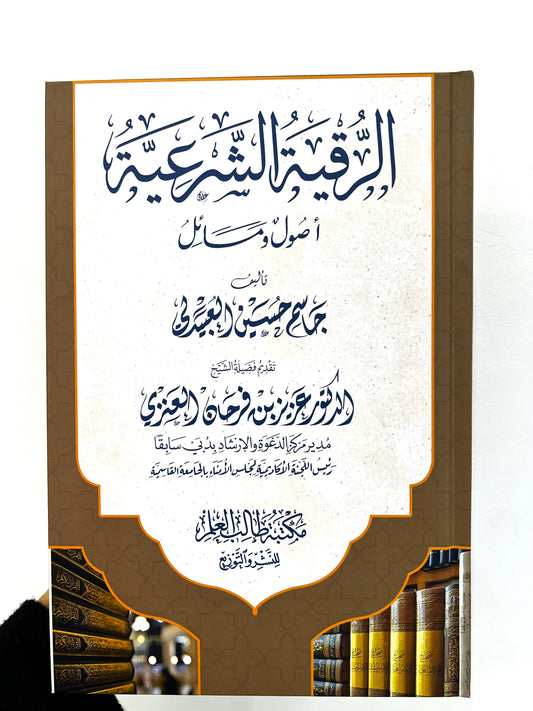 الرقية الشرعية
أصول ومسائل
تأليف
جاسم حسين العبيدلي
تقديم فضيلة الشيخ
الدكتور عزيز بن فرحان العنزي
مدير مركز الدعوة والإرشاد بدبي سابقا
رئيس اللجنة الأكاديمية لمجلس الأمناء بالجامعة القاسمية
مكتبة طالب العلم
للنشر والتوزيع